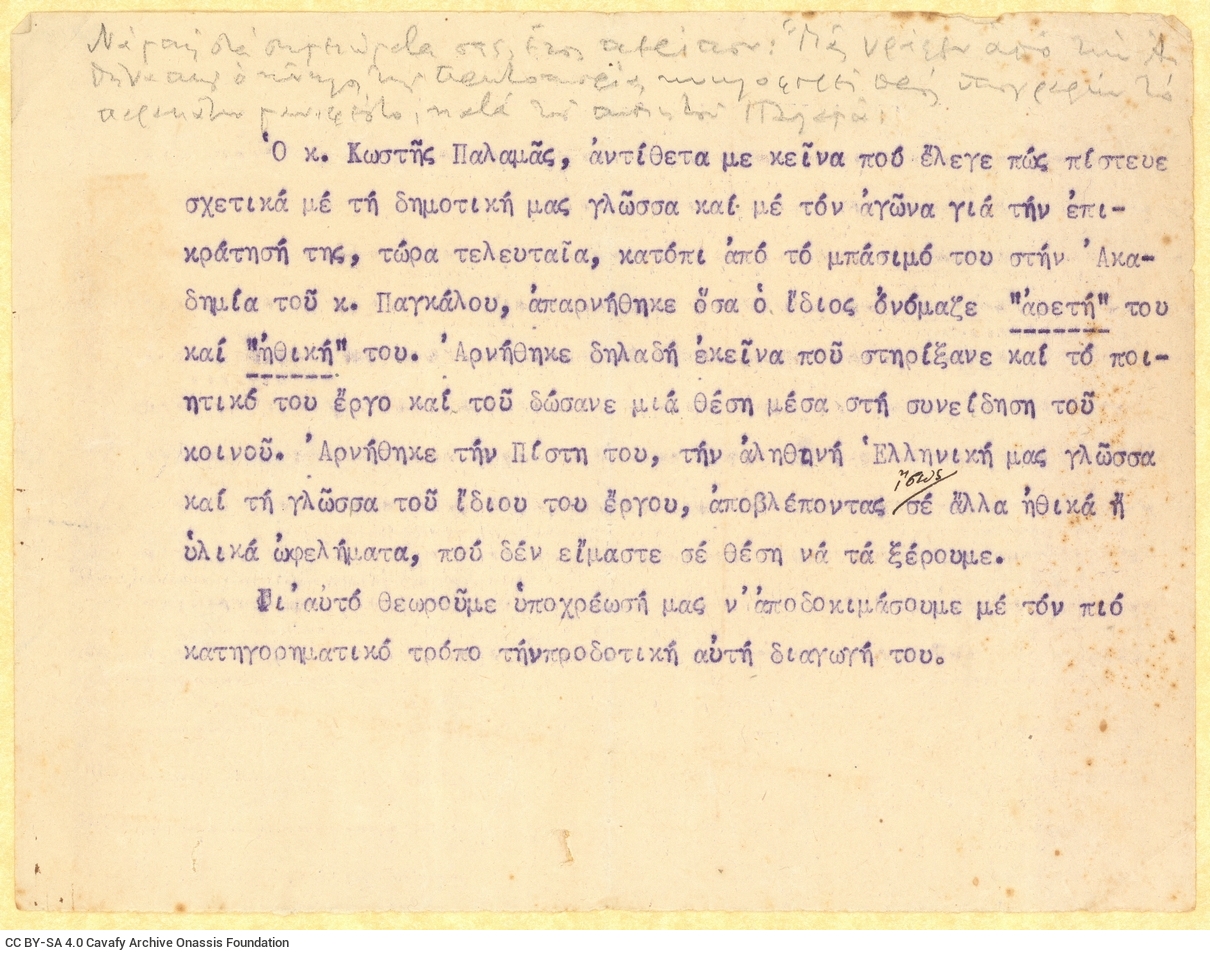 Νά μπῆ στά σημειώματα σας, ἔτσι : "Μᾶς γράφουν ἀπό τήν Ἀ-
θήνα πώς ὁ κύκλος τῆς Πρωτοπορίας κυκλοφορεῖ πρός ὑπογραφήν τό
μανιφέστο, κατά τοῦ ποιητοῦ Παλαμᾶ:
Ὁ κ. Κωστῆς Παλαμᾶς, ἀντίθετα με κεῖνα πού ἔλεγε πώς πίστευε
σχετικά μέ τή δημοτική μας γλῶσσα καί μέ τόν ἀγῶνα γιά τήν ἐπι-
κράτησή της, τώρα τελευταῖα, κατόπι ἀπό τό μπάσιμό του στήν Ἀκα-
δημία τοῦ κ. Παγκάλου, ἀπαρνήθηκε ὅσα ὁ ἴδιος ὀνόμαζε "ἀρετή" του
καί "ἠθική" του. Ἀρνήθηκε δηλαδή ἐκεῖνα ποῦ στηρίξανε καί τό ποι-
ητικό του ἔργο καί τοῦ δώσανε μιά θέση μέσα στή συνείδηση τοῦ
κοινοῦ. Ἀρνήθηκε τήν Πίστη του, τήν ἀληθινή Ἑλληνική μας γλῶσσα
καί τή γλῶσσα τοῦ ἴδιου του ἔργου, ἀποβλέποντας ἴσως σέ ἄλλα ἠθικά ἤ
ὑλικά ὠφελήματα, πού δέν εἴμαστε σέ θέση νά τά ξέρουμε.
Γι'αὐτό θεωροῦμε ὑποχρέωσή μας ν'ἀποδοκιμάσουμε μέ τόν πιό
κατηγορηματικό τρόπο τήνπροδοτική αὐτή διαγωγή του.
CC BY-SA 4.0 Cavafy Archive Onassis Foundation